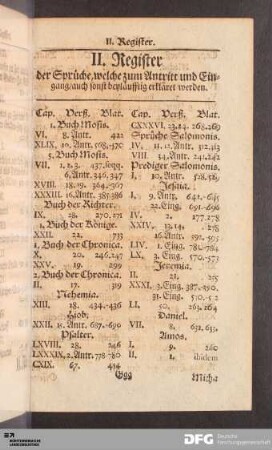 II. Register.
II. Register
der Sprüche, welche zum Antritt und Ein-
gang/auch sonst beyläuffig erkläret werden.
Cap. Verß. Blat.
1. Buch Mosis.
VI. 8. Antr. 421
XLIX. 10. Antr. 568.-570
5. Buch Mosis.
VII. 1.2.3. 437. seqq.
6. Antr. 346.347
XVIII. 18.19. 364.-367
XXXIII. 16. Antr. 385.386
Buch der Richter.
IX. 28. 270.271
1. Buch der Könige.
XXII. 22. 733
1. Buch der Chronica.
X. 20. 246.247
XXV. 19. 299
2. Buch der Chronica.
II. 17. 319
Nehemia.
XIII. 18. 434.-436
Hiob.
XXII. 15. Antr. 687.-690
Psalter.
LXVIII. 28. 246
LXXXIX. 2. Antr. 778-780
CXIX. 67. 414
Cap. Verß. Blat.
CXXXVI. 23.24. 268.269
Sprüche Salomonis.
IV. 11.12. Antr. 312.313
VIII. 34. Antr. 241.242
Prediger Salomonis.
I. 10. Antr. 518.
Jesaia.
I. 9. Antr. 642.-645
22. Eing. 691.-696
IV. 2. 277.278
XXIV. 13.14. 278
16. Antr. 592.-595
LIV. 1. Eing. 782.-784
LX. 3. Eing. 570.-573
Jeremia.
II. 21. 215
XXXI. 3. Eing. 387.-390
31. Eing. 510.-512
LI. 50. 263.264
Daniel.
VII. 8. 652.653
Amos.
I. 9. 260
II. 1. ibidem
Ggg Micha
DFG Deutsche
Forschungsgemeinschaft